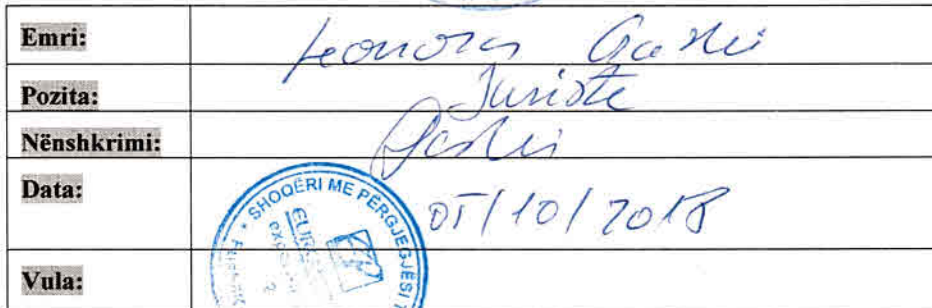 Emri: Leonora Gashi
Pozita: Juriste
Nënshkrimi: Gashi
Data: 05/10/2018
Vula:
SHOQËRI ME PËRGJEGJËSI